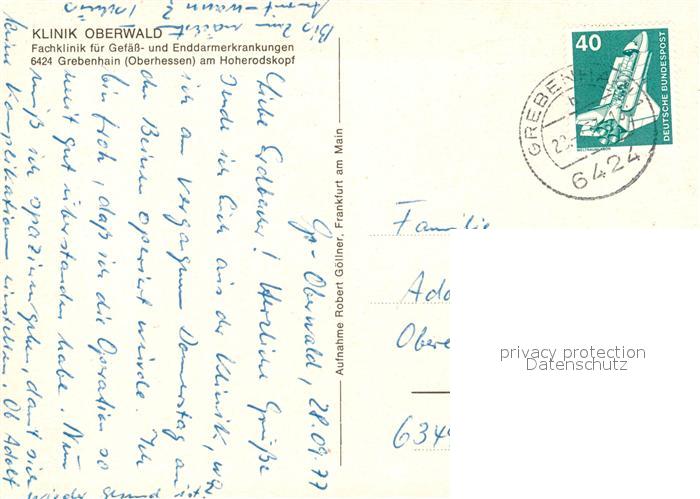 KLINIK OBERWALD
Fachklinik für Gefäß- und Enddarmerkrankungen
6424 Grebenhain (Oberhessen) am Hoherodskopf
Gr.-Oberwald, 28.09.77
Liebe Erdbacher! Herzliche Grüße
sende ich Euch aus der Klinik, wo
ich am vergangenen Donnerstag an
den Beinen operiert wurde. Ich
bin froh, daß ich die Operation so
weit gut überstanden habe. Nun
muß ich spazierengehen, damit sich
keine Komplikationen einstellen. Ob Adolf
wieder gesund ist
Bis zum nächst
Aufnahme Robert Göllner, Frankfurt am Main
40
DEUTSCHE BUNDESPOST
WELTRAUMLABOR
GREBENH
6424
Familie
Ado
Obere
634
privacy protection
Datenschutz